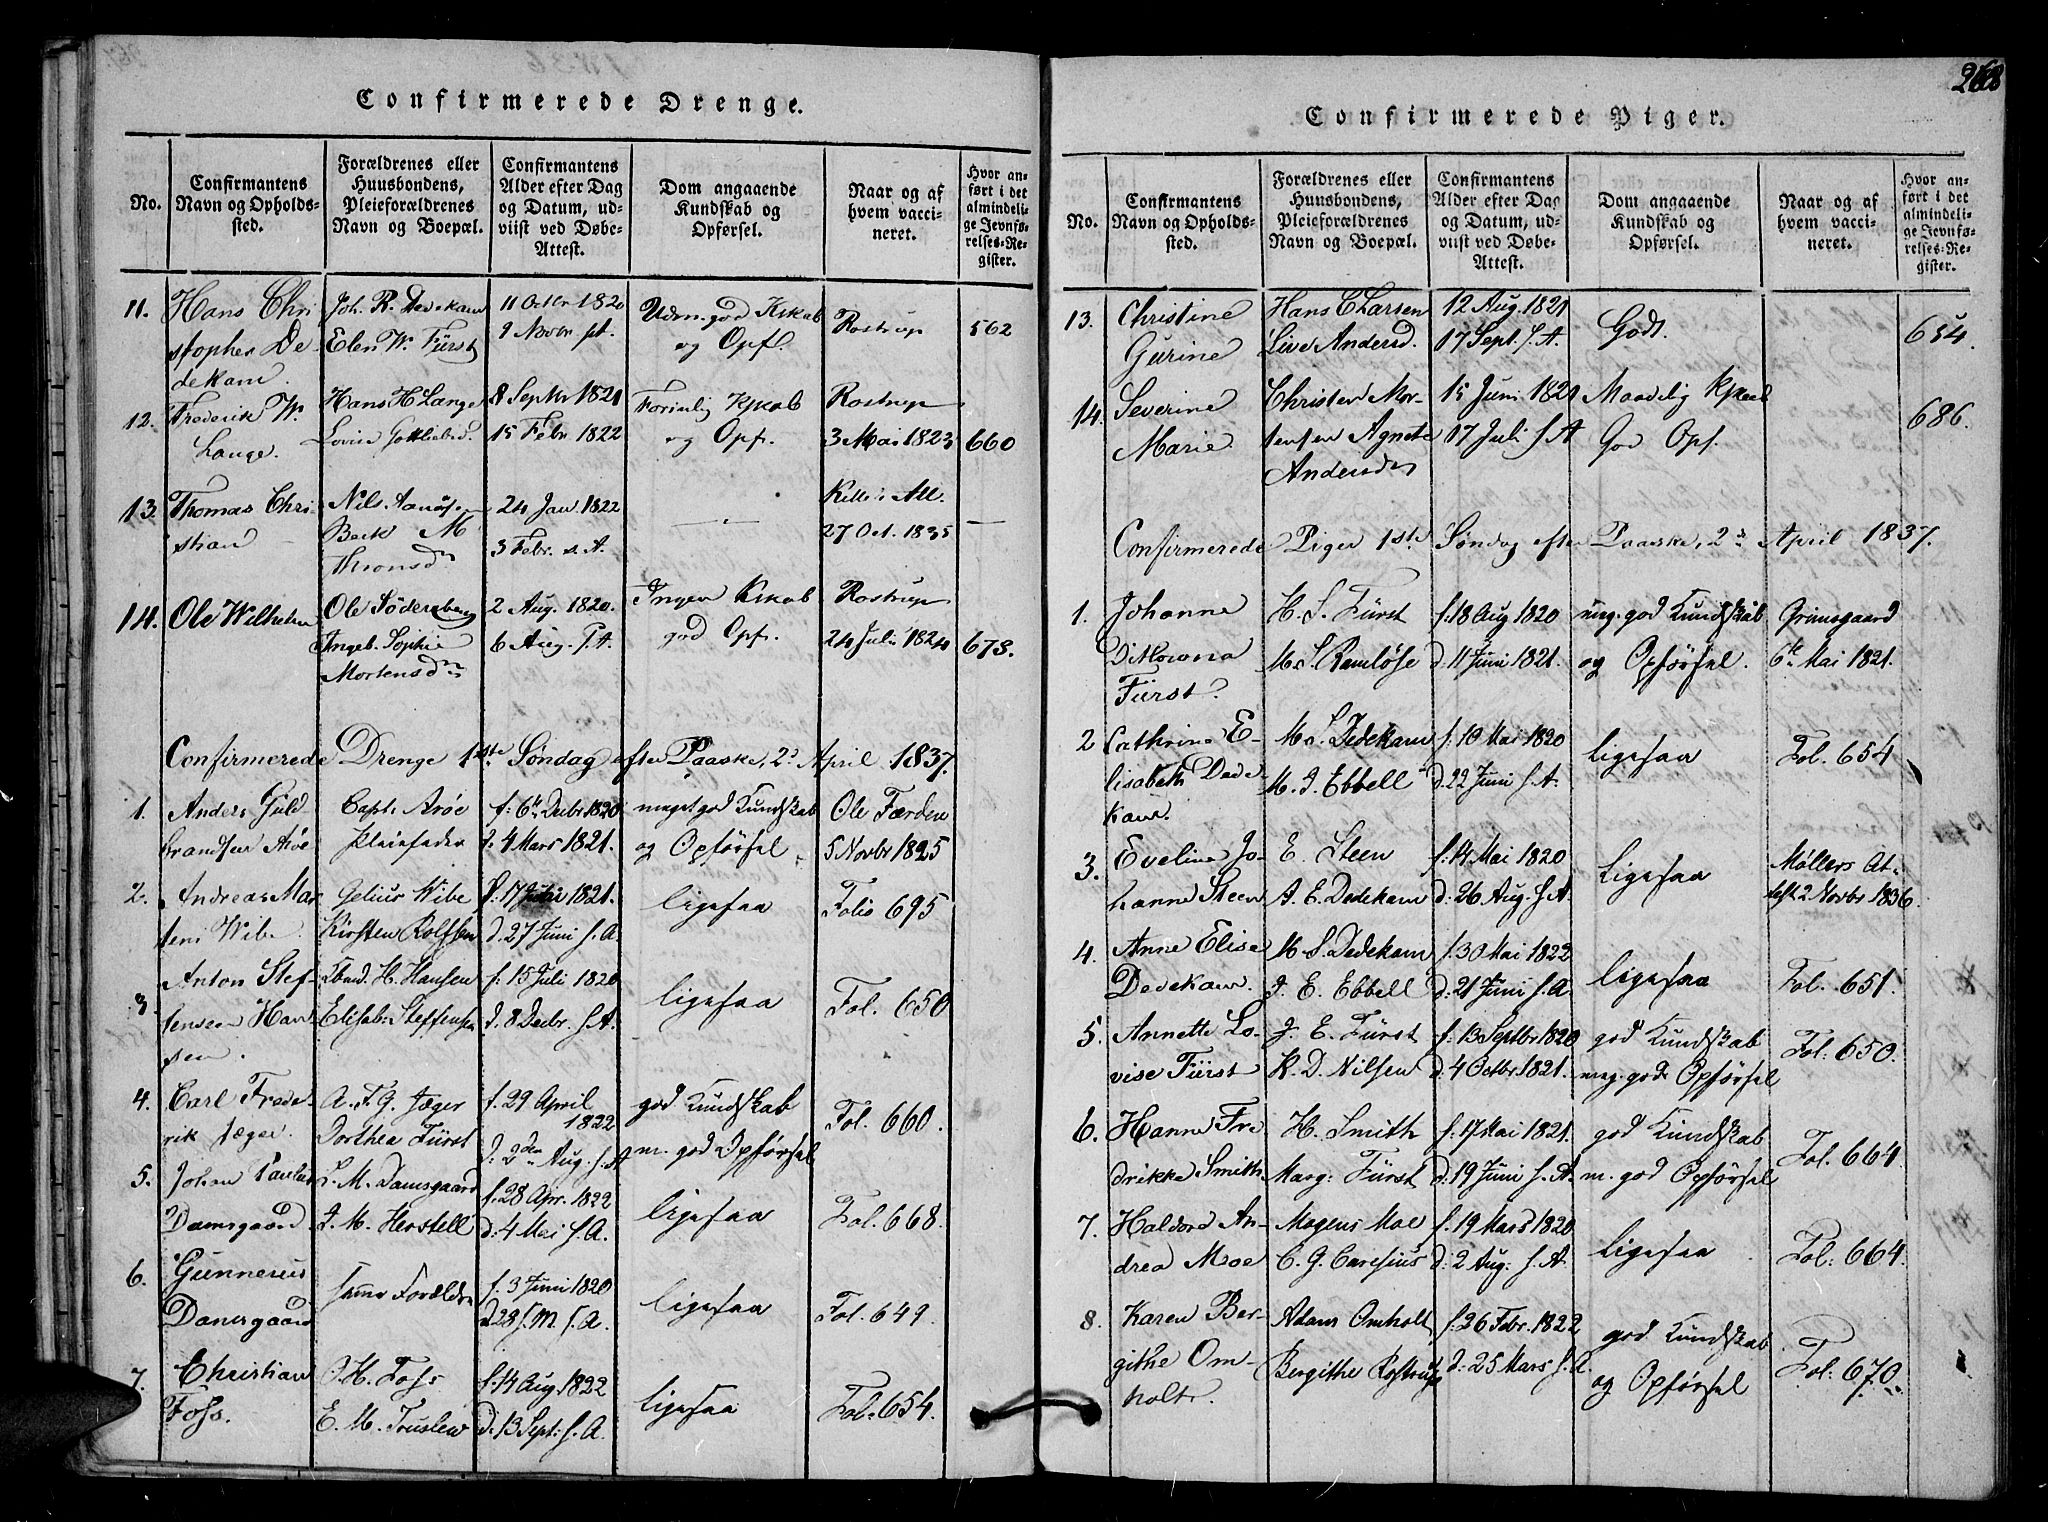 Confirmerede Drenge.
No.
Confirmantens Navn og Opholds-sted.
Forældrenes eller Huusbondens, Pleieforældrenes Navn og Boepæl.
Confirmantens Alder efter Dag og Datum, ud-viist ved Døbe-Attest.
Dom angaaende Kundskab og Opførsel.
Naar og af hvem vacci-neret.
Hvor an-ført i det almindeli-ge Jevnfø-relses-Re-gister.
11. Hans Chri Joh. R. Dedekam 11 Octbr 1820 Udm. god Kskab Rostrup 562
stopher De Elen W. Fürst 9 Novbr s.A. og Opf.
dekam.
12. Frederik W. Hans H Lange 8 Septbr 1821 Rostrup
Lange. 15 Febr 1822 og Opf. 3 Mai 1823 660
13. Thomas Chri Nils 24 Jan. 1822 — " — —
stian Beck M 3 Febr. s. A. 27 Oct. 1835
14. Ole Wilhelm Ole Söderberg 2 Aug. 1820. Ingen Kskab Rostrup
Ingeb. Sophie 6 Aug. s.A. god Opf. 24 Juli 1824 673.
Mortensd
Confirmerede Drenge 1ste Søndag efter Paaske, 2d April 1837.
1. Anders Guld Capt. Aröe f: 6te Decbr 1820 meget god Kundskab Ole Færden
brandsen Aröe Pleiefader d. 4 Mars 1821. og Opførsel 5 Novbr 1825
2. Andreas Mar Gelius Wibe f: 17 1821. ligesaa Folio 695
Wibe. Kirsten Rolfsen d. 27 Juni s.A.
3. Anton Stef H. Hansen f: 15 Juli 1820 ligesaa Fol. 650
fensen Han Elisab: Steffensen d. 8 Decbr. s.A.
sen.
4. Carl Frede- A. F. G. Jæger f. 29 April 1822 god Kundskab Fol. 660.
rik Jæger. Dorthea Fürst d: 2den Aug. s.A m. god Opførsel
5. Johan Paulus L. M. Damsgaard f. 28 Apr. 1822 ligesaa Fol. 668.
Damsgaard M. Herstell d: 4 Mai s.A.
6. Gunnerus samme Forældre f. 3 Juni 1820 ligesaa Fol. 649.
Damsgaard d 28 s.M. s.A.
7. Christian H. Foss f. 14 Aug. 1822 ligesaa Fol. 654.
Foss. E. M. Truslew d: 13 Sept: s.A.
268
Confirmerede Piger.
No.
Confirmantens Navn og Opholds-sted.
Forældrenes eller Huusbondens, Pleieforældrenes Navn og Boepæl.
Confirmantens Alder efter Dag og Datum, ud-viist ved Døbe-Attest.
Dom angaaende Kundskab og Opførsel.
Naar og af hvem vacci-neret.
Hvor an-ført i det almindeli-ge Jevnfø-relses-Re-gister.
13. Christine Hans C Larsen 12 Aug. 1821 Godt. 654.
Gurine Live Andersd. 17 Sept. s.A.
14. Severine Christen Mor- 15 Juni 1821 Maadelig Kskab 686.
Marie tensen Agnete 17 Juli s.A God Opf.
Andersd
Confirmerede Piger 1ste Søndag efter Paaske, 2d April 1837.
1. Johanne H. S. Fürst f: 18 Aug 1820 mg. god Kundskab Grimsgaard
M. S. Ramlöse d: 11 Juni 1821. og Opførsel. 6te Mai 1821.
Fürst.
2 Cathrine E- M. S. Dedekam f: 10 Mai 1820 ligesaa Fol. 654
lisabeth Dede- M. J. Ebbell d: 22 Juni s.A.
kam.
3. Eveline Jo- E. Steen f: 14 Mai 1820 ligesaa Møllers At-
hanne Steen A. E. Dedekam d: 26 Aug. s.A. test 2 Novbr 1836.
4. Anne Elise M. S. Dedekam f. 30 Mai 1822 ligesaa Fol. 651.
Dedekam. J. E. Ebbell d: 21 Juni s.A.
5. Annette Lo- J. E. Fürst f: 13 Septbr 1820 god Kundskab Fol: 650.
vise Fürst K. D. Nilsen d: 4 Octbr 1821. mg. god Opførsel
6. Hanne Fre H. Smith f: 17 Mai 1821. god Kundskab Fol. 664.
drikke Smith Marg: Fürst d: 19 Juni s.A. m. god Opførsel
7. Haldora An- Mogens Moe f. 19 Mars 1820 ligesaa Fol: 664.
drea Moe C. G. Caresius d: 2 Aug: s.A.
8. Karen Ber- Adam Omholt f. 26 Febr. 1822 god Kundskab Fol: 670.
githe Om- Bergithe Rostrup d: 25 Mars s.A. og Opførsel
holt.